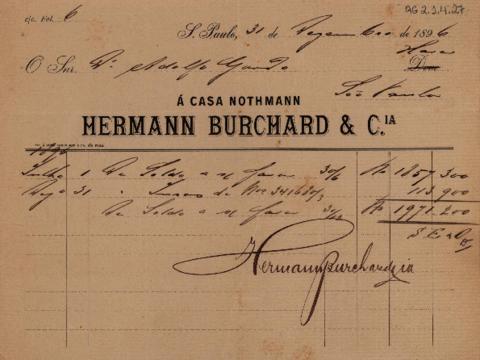 c/c Fol. 6
AG 2.1.4.27
S. Paulo, 31 de Dezembro de 1896
O Snr. Dr. Adolfo Gordo
Deve
São Paulo
Á CASA NOTHMANN
HERMANN BURCHARD & C.IA
1896
Julho 1 De Saldo a n/ favor 30/6 Rs 1857.300
Dez 31 " Juros de 113.900
De Saldo a n/ favor 31/12 Rs 1971.200
S. E. & O.
Hermann Burchard & Cia